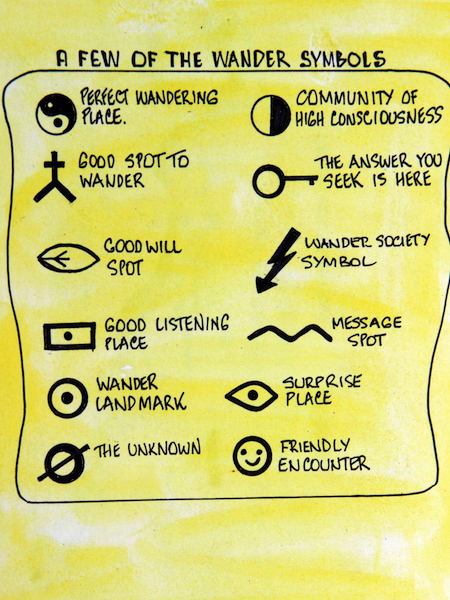 A FEW OF THE WANDER SYMBOLS
PERFECT WANDERING
PLACE.
COMMUNITY OF
HIGH CONSCIOUSNESS
GOOD SPOT TO
WANDER
THE ANSWER YOU
SEEK IS HERE
GOOD WILL
SPOT
WANDER SOCIETY
SYMBOL
GOOD LISTENING
PLACE
MESSAGE
SPOT
WANDER
LANDMARK
SURPRISE
PLACE
THE UNKNOWN
FRIENDLY
ENCOUNTER